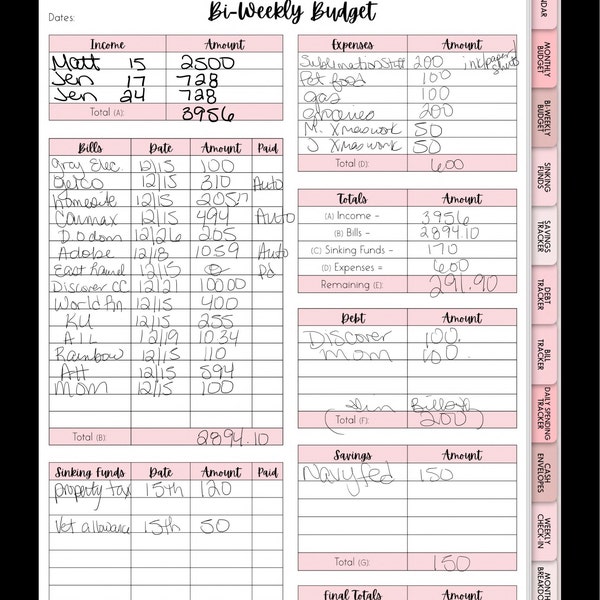 Bi-Weekly Budget
Dates:
Income Amount
Matt 15 2500
Jen 17 728
Jen 24 728
Total (A): 3956
Bills Date Amount Paid
Gray Elec. 12/15 100
Getco 12/15 310 Auto
Homesite 12/15 205
Carmax 12/15 494 Auto
Dodom 12/26 205
Adobe 12/18 10.59 Auto
East Raund 12/15 Pd
Discover CC 12/21 100.00
World Fin 12/15 400
KU 12/15 255
AIL 12/19 10.34
Rainbow 12/15 110
Att 12/15 594
Mom 12/15 100
Total (B): 2894.10
Sinking Funds Date Amount Paid
property tax 15th 120
Vet allowance 15th 50
Expenses Amount
Sublimation Stuff 200 ink/paper/shirts
Pet food 100
gas 100
groceries 200
M. Xmas work 50
J Xmas work 50
Total (D): 600
Totals Amount
(A) Income – 3956
(B) Bills – 2894.10
(C) Sinking Funds – 170
(D) Expenses = 600
Remaining (E): 291.90
Debt Amount
Discover 100.
mom 100.
Total (F): 200
Savings Amount
Navy fed 150
Total (G): 150
Final Totals Amount
MONTHLY BUDGET
BI-WEEKLY BUDGET
SINKING FUNDS
SAVINGS TRACKER
DEBT TRACKER
BILL TRACKER
DAILY SPENDING TRACKER
CASH ENVELOPES
WEEKLY CHECK-IN